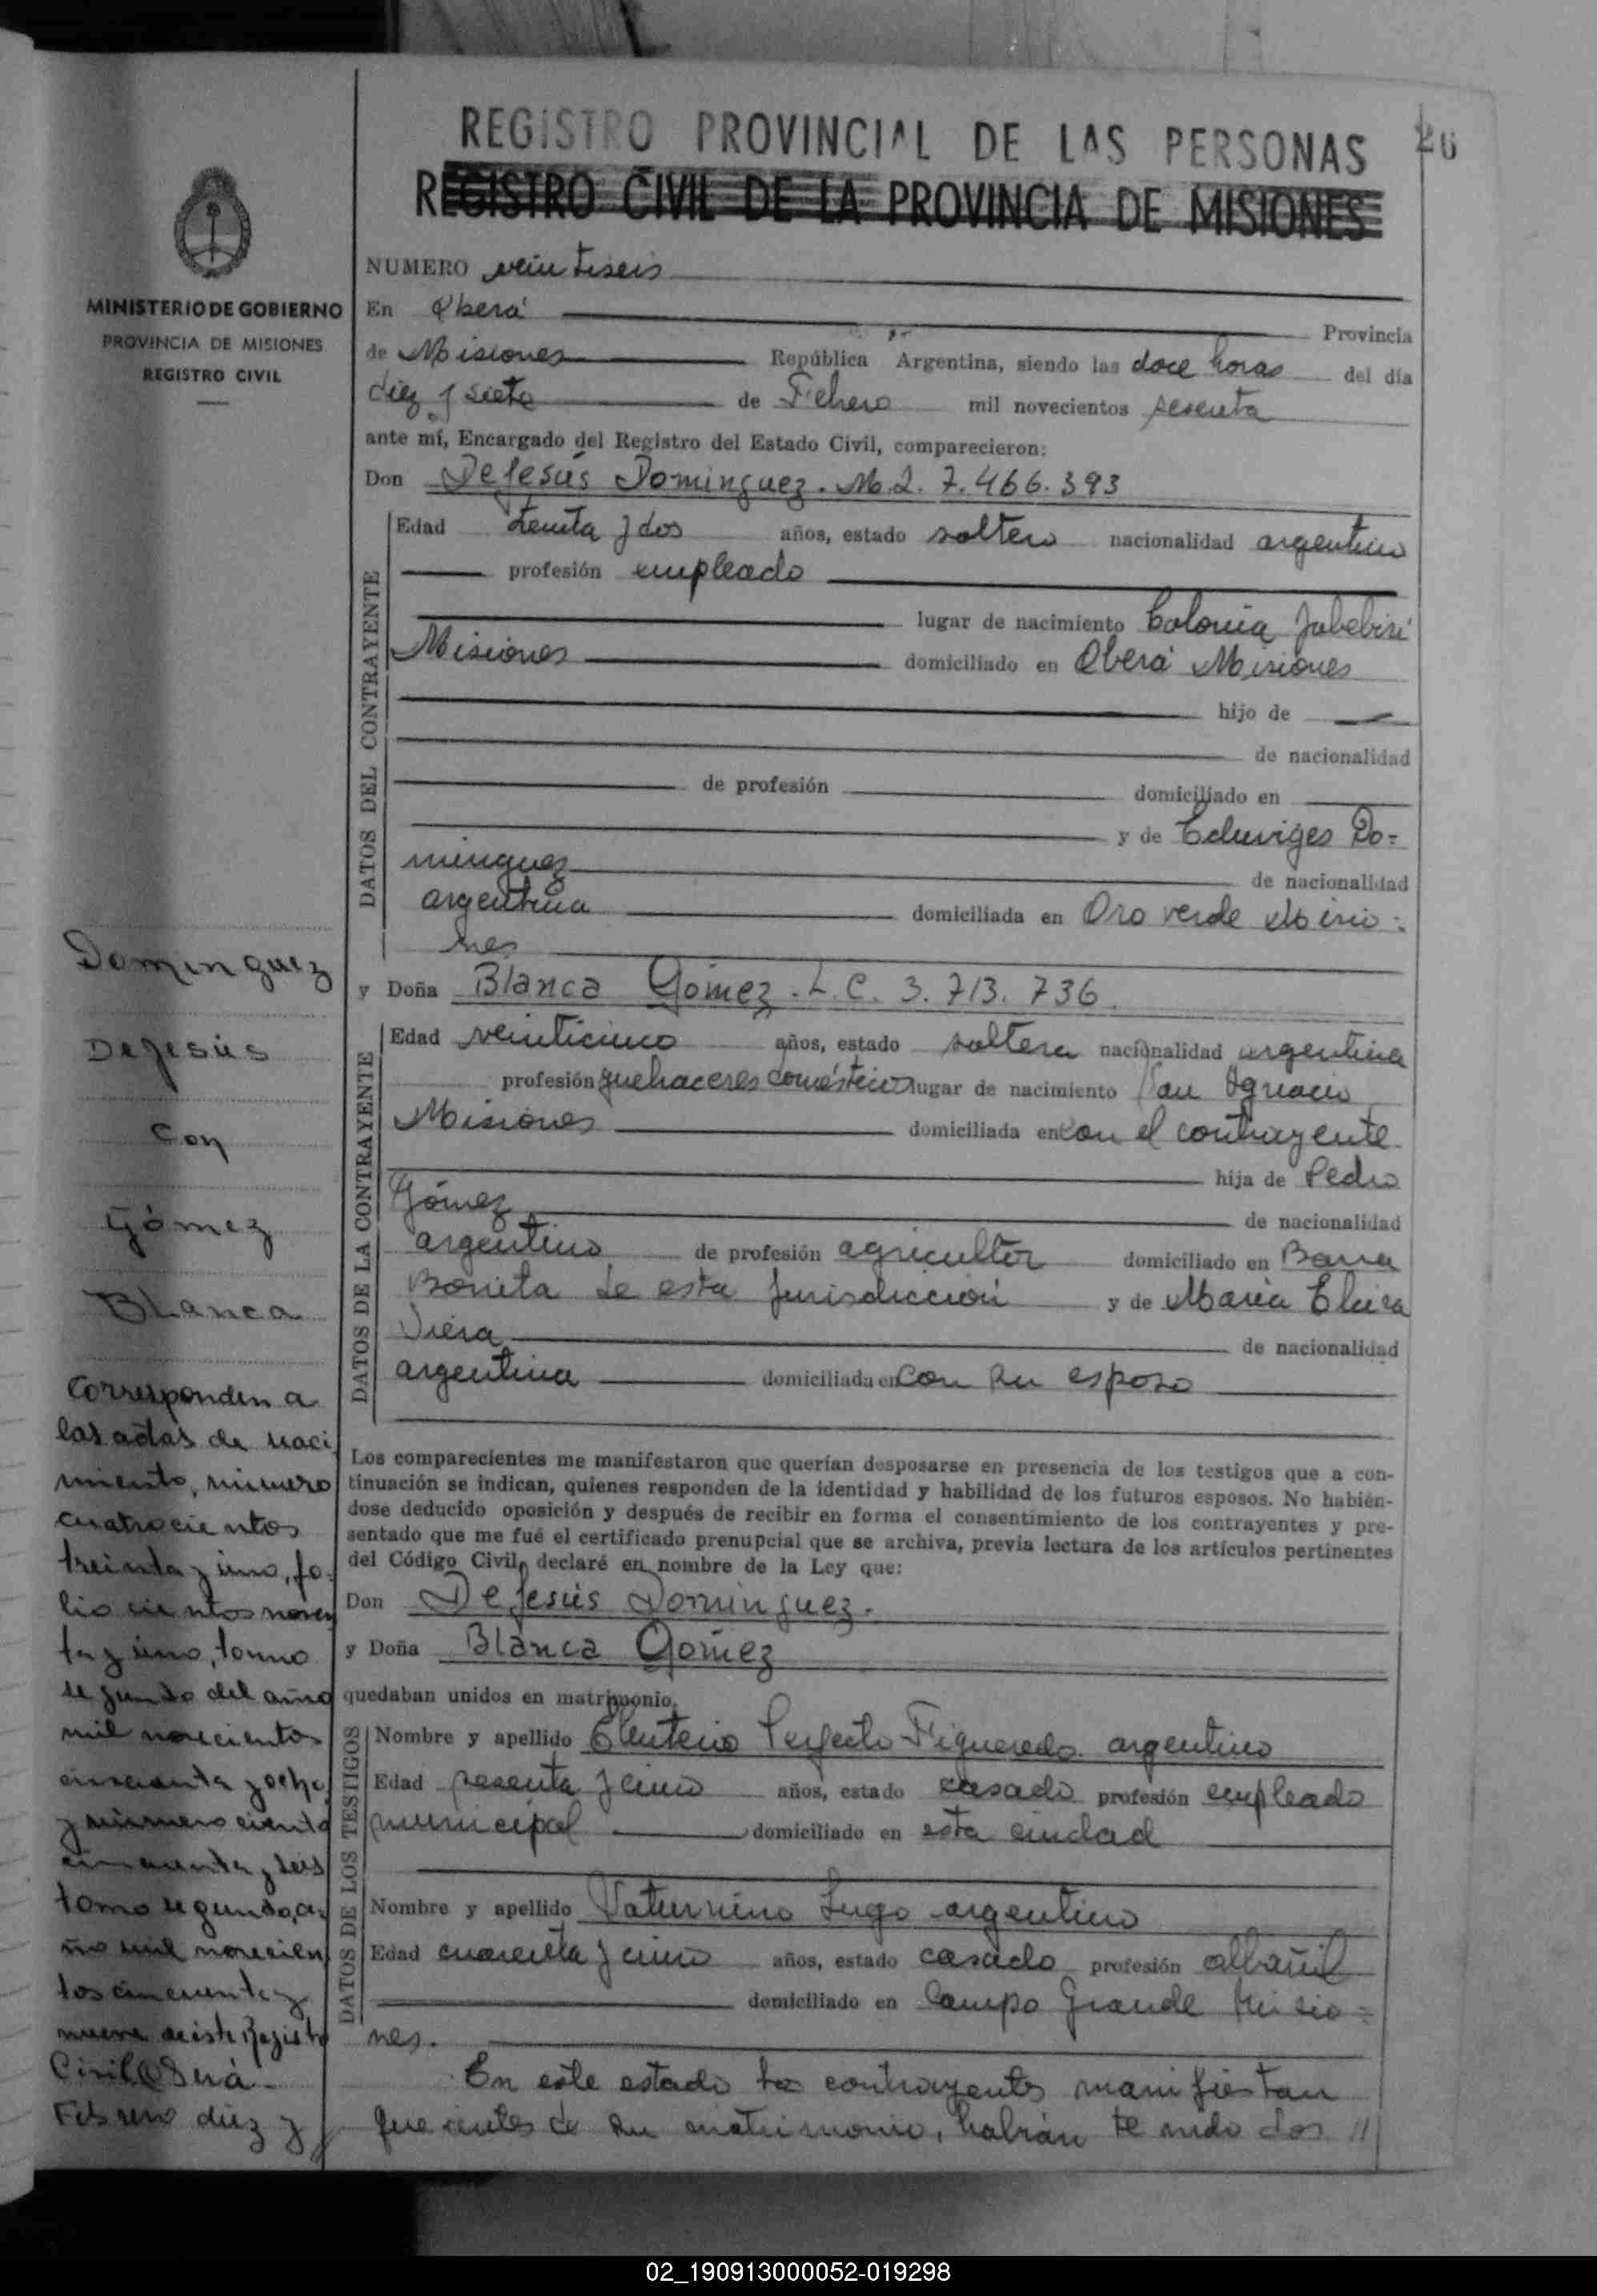 REGISTRO PROVINCIAL DE LAS PERSONAS
26
REGISTRO CIVIL DE LA PROVINCIA DE MISIONES
MINISTERIO DE GOBIERNO
PROVINCIA DE MISIONES
REGISTRO CIVIL
NUMERO veintiseis
En Oberá Provincia
de Misiones República Argentina, siendo las doce horas del día
diez y siete de Febrero mil novecientos sesenta
ante mí, Encargado del Registro del Estado Civil, comparecieron:
Don DeJesús Dominguez. M.I. 7.466.393
DATOS DEL CONTRAYENTE
Edad treinta y dos años, estado soltero nacionalidad argentino
profesión empleado
lugar de nacimiento Colonia Jabebiri
Misiones domiciliado en Oberá Misiones
hijo de
de nacionalidad
de profesión domiciliado en
y de Eduviges Do=
minguez de nacionalidad
argentina domiciliada en Oro verde Misio=
nes
y Doña Blanca Gómez. L.C. 3.713.736
DATOS DE LA CONTRAYENTE
Edad veinticinco años, estado soltera nacionalidad argentina
profesión quehaceres domésticos lugar de nacimiento San Ignacio
Misiones domiciliada en con el contrayente
hija de Pedro
Gómez de nacionalidad
argentino de profesión agricultor domiciliado en Barra
Bonita de esta jurisdicción y de María Elvira
Viera de nacionalidad
argentina domiciliada en con su esposo
Los comparecientes me manifestaron que querían desposarse en presencia de los testigos que a con-
tinuación se indican, quienes responden de la identidad y habilidad de los futuros esposos. No habién-
dose deducido oposición y después de recibir en forma el consentimiento de los contrayentes y pre-
sentado que me fué el certificado prenupcial que se archiva, previa lectura de los artículos pertinentes
del Código Civil, declaré en nombre de la Ley que:
Don DeJesús Dominguez.
y Doña Blanca Gómez
quedaban unidos en matrimonio.
DATOS DE LOS TESTIGOS
Nombre y apellido Eleuterio Perfecto Figueredo argentino
Edad sesenta y cinco años, estado casado profesión empleado
municipal domiciliado en esta ciudad
Nombre y apellido Saturnino Lugo argentino
Edad cuarenta y cinco años, estado casado profesión albañil
domiciliado en Campo Grande Misio=
nes.
En este estado los contrayentes manifiestan
que antes de su matrimonio, habían tenido dos //
Dominguez
DeJesús
con
Gómez
Blanca
Corresponden a
las actas de naci
miento, número
cuatrocientos
treinta y uno, fo-
lio cientos noven
ta y uno, tomo
segundo del año
mil novecientos
cincuenta y ocho
y número ciento
cincuenta y seis
tomo segundo, a-
ño mil novecien
tos cincuenta y
nueve de este Registro
Civil Oberá.
Febrero diez y //
02_190913000052-019298